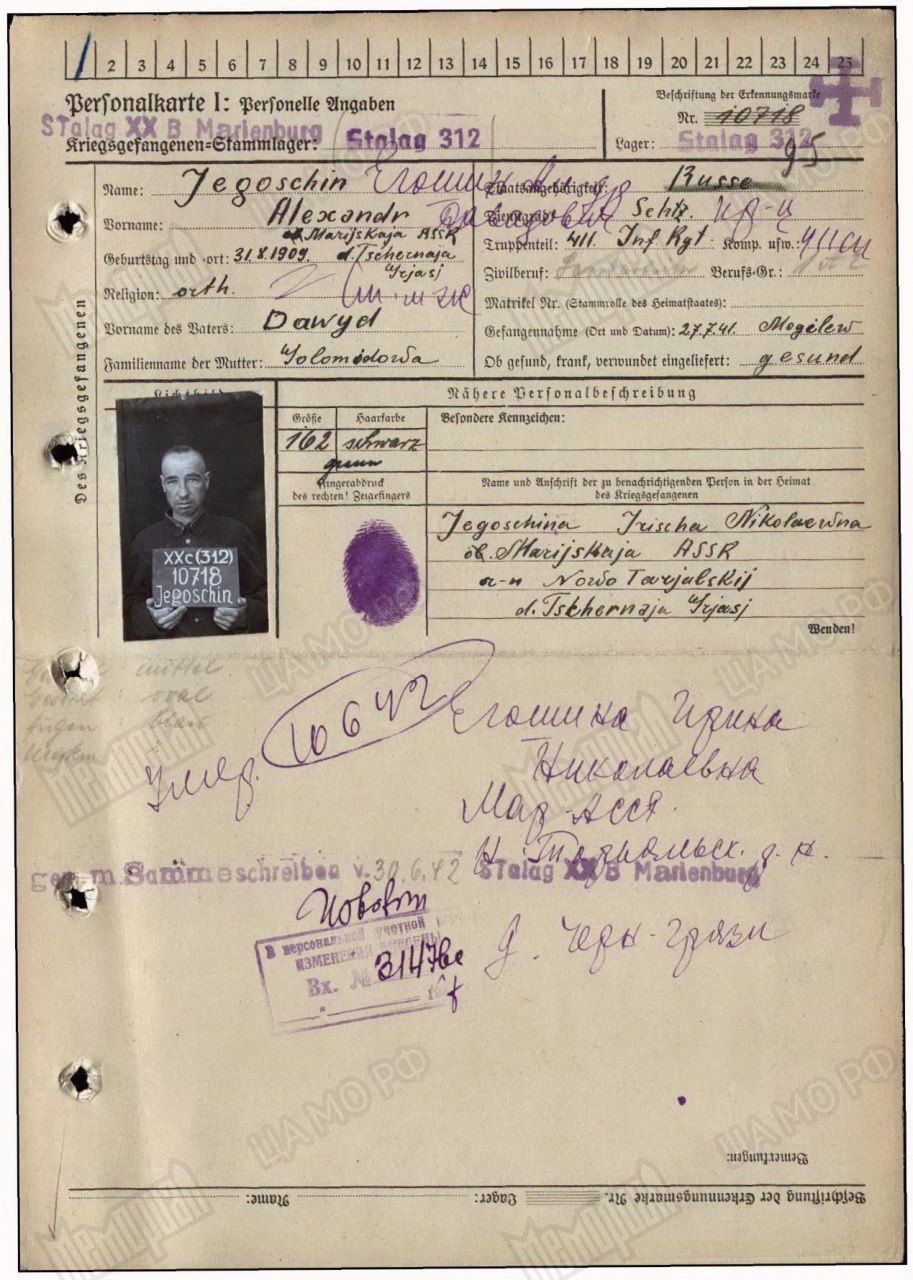 1 2 3 4 5 6 7 8 9 10 11 12 13 14 15 16 17 18 19 20 21 22 23 24 25
Personalkarte I: Personelle Angaben
Beschriftung der Erkennungsmarke
Nr. 10718
STalag XX B Marienburg
Kriegsgefangenen-Stammlager: Stalag 312
Lager: Stalag 312
95
Des Kriegsgefangenen
Name: Jegoschin Егошин
Staatsangehörigkeit: Russe
Vorname: Alexandr Давидович
Dienstgrad: Schtz. кр-ц
ob. Marijskaja ASSR
Truppenteil: 411 Inf Rgt. Komp. usw.: 411 сп
Geburtstag und -ort: 31.8.1909. d. Tschernaja
Grjasj
Zivilberuf: Berufs-Gr.:
Religion: orth.
Matrikel Nr. (Stammrolle des Heimatstaates):
Vorname des Vaters: Dawyd
Gefangennahme (Ort und Datum): 27.7.41. Mogilew
Familienname der Mutter: Solomidowa
Ob gesund, krank, verwundet eingeliefert: gesund
Lichtbild
Nähere Personalbeschreibung
Größe Haarfarbe
Besondere Kennzeichen:
162 schwarz
Fingerabdruck
des rechten! Zeigefingers
Name und Anschrift der zu benachrichtigenden Person in der Heimat
des Kriegsgefangenen
Jegoschina Irischa Nikolaewna
ob. Marijskaja ASSR
r-n Nowo Tarjalskij
d. Tschernaja Grjasj
XXc(312)
10718
Jegoschin
Wenden!
mittel.
oval
Augen blau
Умер. 10 6 42
Егошина Ирина
Николаевна
Мар. АССР.
Н. Тарьяльск. р. н.
gem. Sammelschreiben v. 30.6.42 STalag XX B Marienburg
д. Черн-грязи
В персональной учетной
ИЗМЕНЕНИЯ ВНЕСЕНЫ
Вх. № 3147вс
Bemerkungen:
Beschriftung der Erkennungsmarke Nr. Lager: Name:
Мемориал
ЦАМО РФ